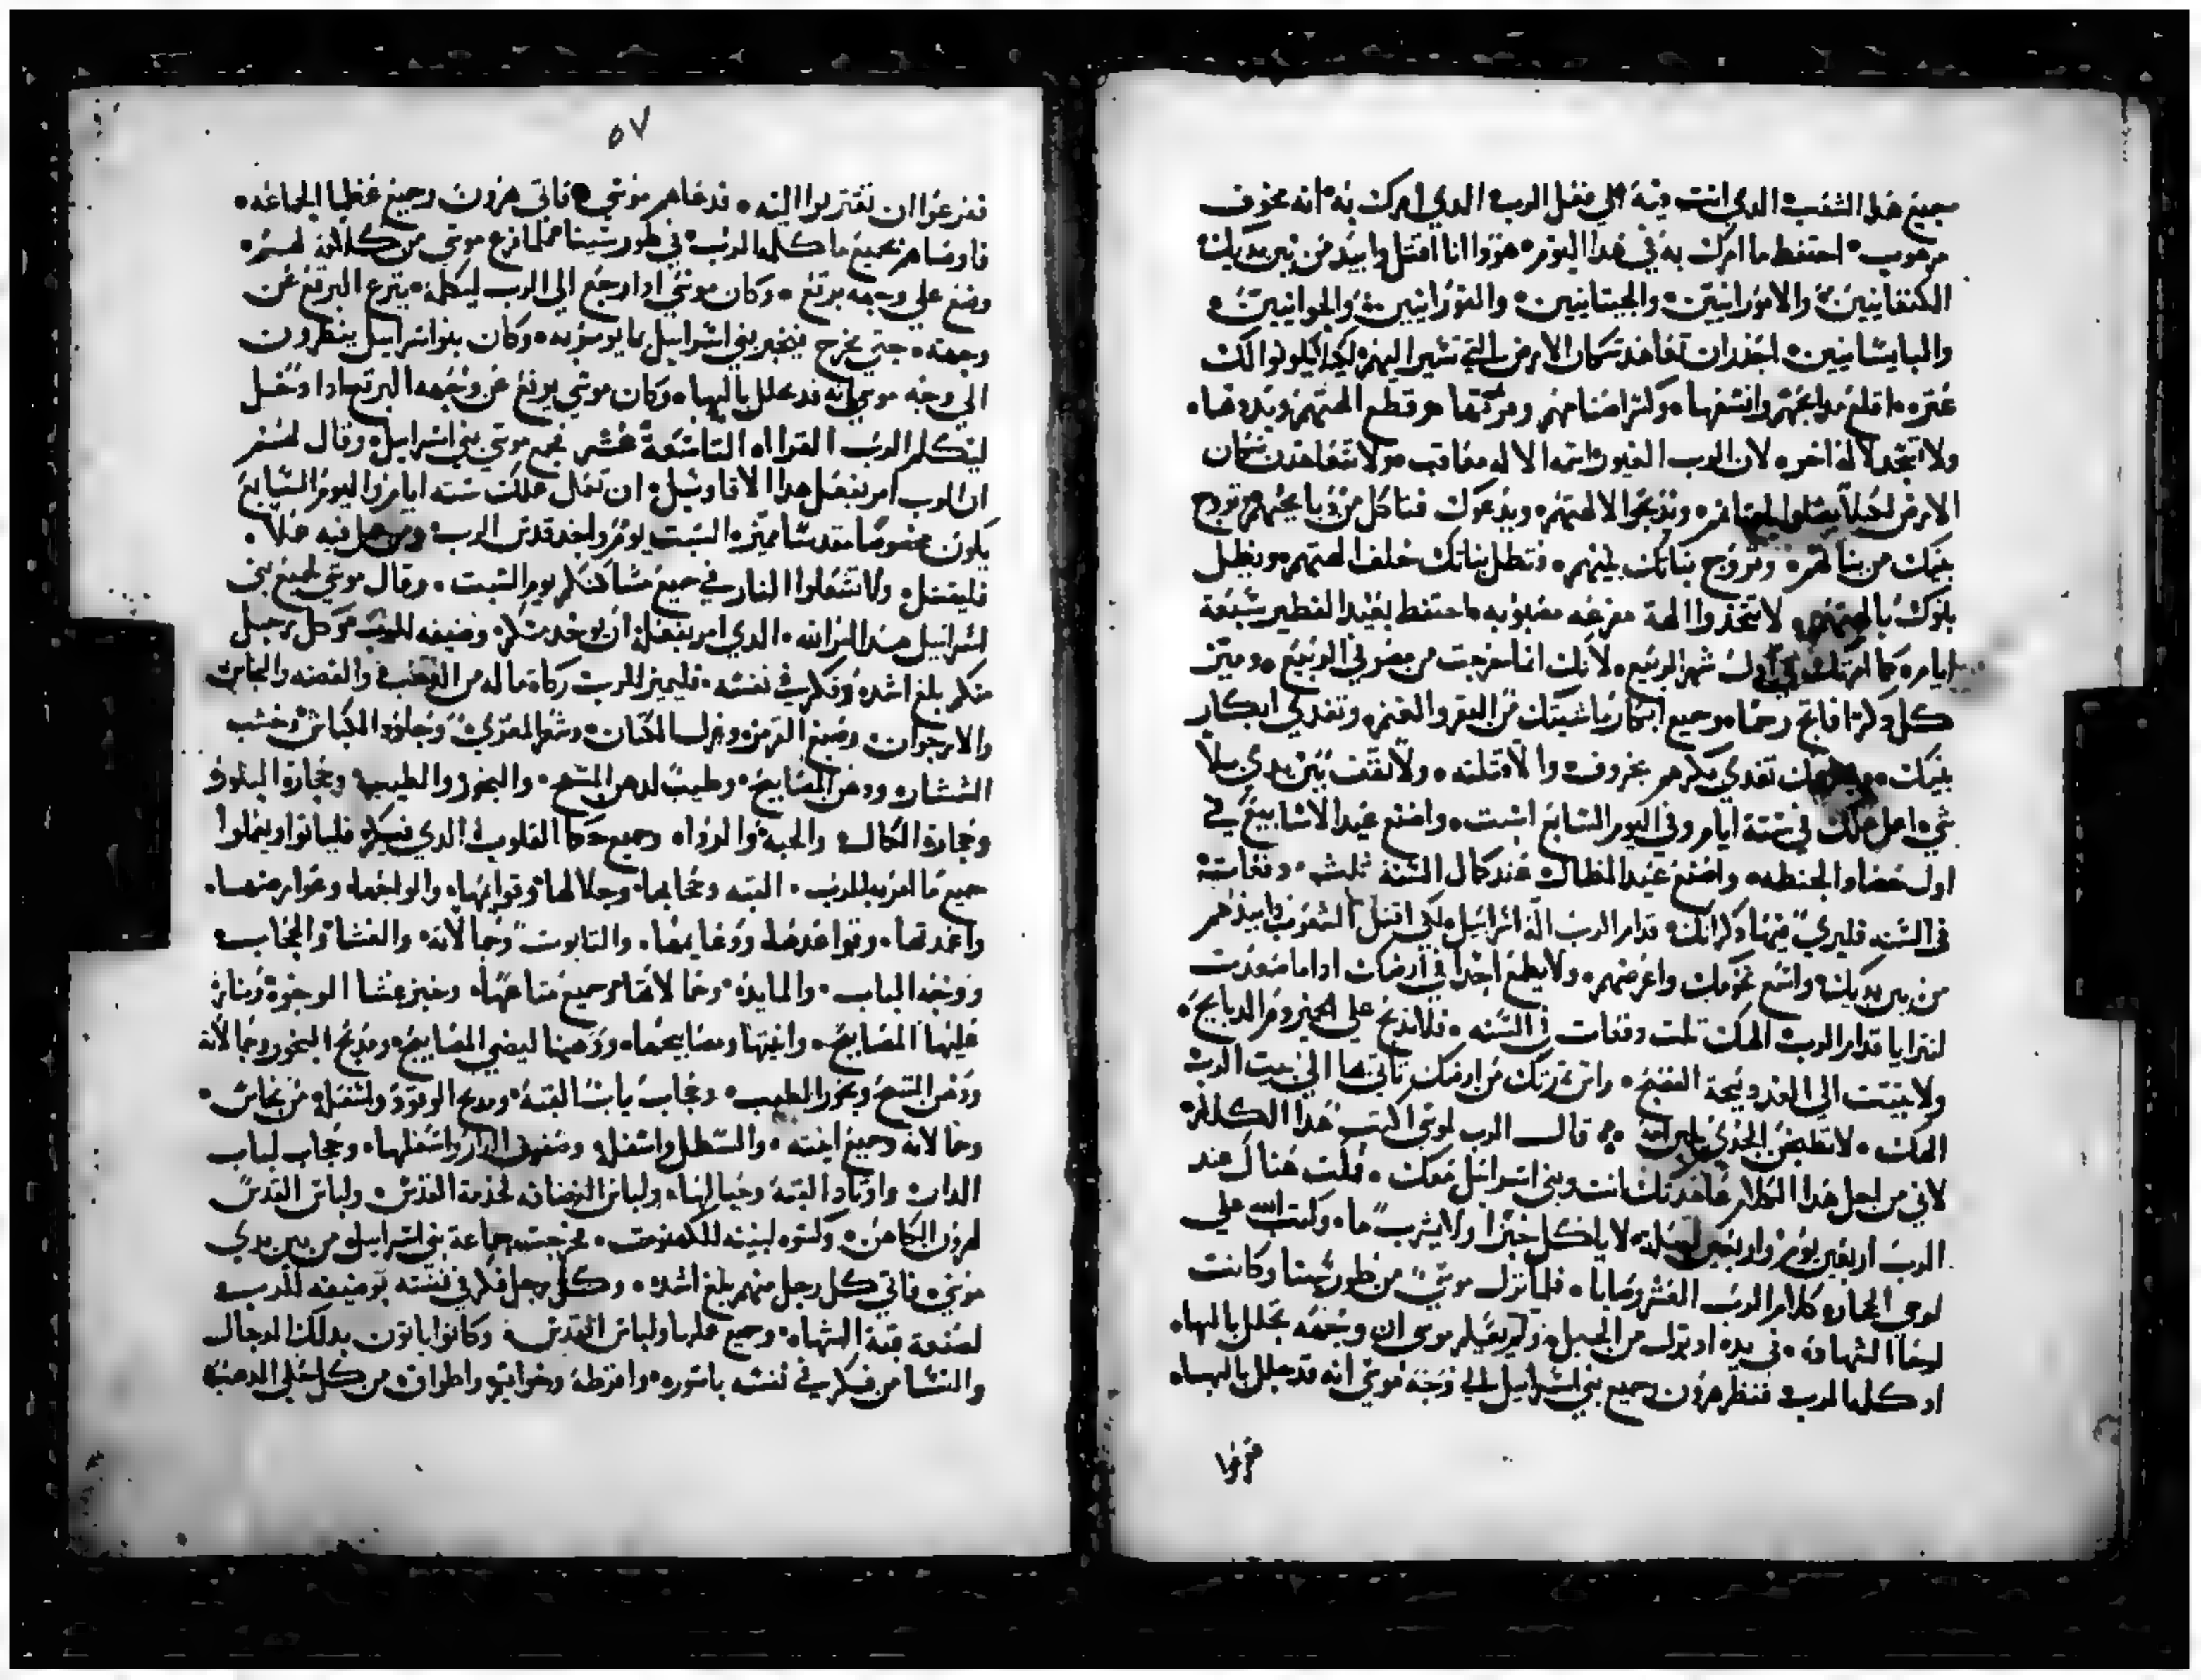 جميع هذا الشعب الدي انت فيه الي فعل الرب الدي امرك به انه مخوف
مرهوب احتفظ ما امرك به في هدا اليوم هودا انا اقتل وابيد من بين يديك
الكنعانيين والامورانيين والحيتانيين والفورانيين والحوانيين
والبايسانيين احفد ان تعاهد سكان الارض التي تسير اليهم لكيلا يكونوا لك
عتره اقلع مدابحهم وانسفها وكسر اصنامهم ومزقها وقطع الهتهم وبددها
ولا تتخد الاه اخر لان الرب الغيور اسمه الاله معاقب ولا تتعاهدن سكان
الارض لكيلا يضلوا الهتهم ويدبحوا لالهتهم ويدعوك فتاكل من دبايحهم وتزوج
بنيك من بناتهم وتزوج بناتك بنيهم فتضل بناتك خلف الهتهم ويضل
بنوك بالهتهم لا تتخدوا الهة مفرغه مصبوبه احتفظ بعيد الفطير سبعة
ايام كما امرتك في اول شهر الربيع لانك انما خرجت من مصر في الربيع وميز
كل دكر فاتح رحما وجميع ابكار ماشيتك من البقر والغنم وتفدي ابكار
بنيك تفدي بكرهم بخروف والا قتلته ولا تقف بين يدي بلا
شي اعمل عملك في ستة ايام وفي اليوم السابع اسبت واصنع عيد الاسابيع في
اول حصاد الحنطه واصنع عيد المظال عند كمال السنة ثلث دفعات
في السنه فليري فيها دكرانك قدام الرب اله اسراييل لكي اقتل الشعوب وابيدهم
من بين يديك واتسع تخومك واعرضهم ولا يطمع احدا في ارضك ادا ما صعدت
لتترايا قدام الرب الهك تلت دفعات في السنه فلا تدبح علي الخمير دم الدبايح
ولا يبيتت الي الغد دبيحة الفصح وابكر ثمرتك من ارضك تاتي بها الي بيت الرب
الهك لا تطبخن الجدي بلبن امه قال الرب لموسي اكتب هدا الكلام
لاني من اجل هدا الكلام عاهدتك انت وبني اسراييل معك فمكت هناك عند
الرب اربعين يوم واربعين ليله لا ياكل خبزا ولا يشرب ما وكتب الله علي
لوحي الحجاره كلام الرب العشر وصايا فلما نزل موسي من طور سينا وكانت
لوحا الشهاده في يده اد نزل من الجبل ولم يعلم موسي ان وجهه تجلل بالبها
اد كلمه الرب فنظر هرون وجميع بني اسراييل الي وجه موسي انه قد تجلل بالبها
فزعوا
٥٧
ففزعوا ان يقتربوا اليه فدعاهم موسي فاتي هرون وجميع عظما الجماعه
فاوصاهم بجميع ما كلمه الرب في طور سينا فلما فرغ موسي من كلامه لهم
وضع علي وجهه برقع وكان موسي ادا رجع الي الرب ليكلمه ينزع البرقع عن
وجهه حتي يخرج فيخبر بني اسراييل بما يومر به وكان بنوا اسراييل ينظرون
الي وجه موسي انه قد تجلل بالبها وكان موسي يرفع عن وجهه البرقع ادا دخل
ليكلم الرب القراه التاسعة عشر فجمع موسي بني اسراييل وقال لهم
ان الرب امر بفعل هدا الاقاويل ان تعمل عملك سته ايام واليوم السابع
يكون مخصوصا مقدسا مميزه السبت يوم واحد قدس الرب ومن عمل فيه عملا
فليقتل ولا تشعلوا النار في جميع مساكنكم يوم السبت وقال موسي لجميع بني
اسراييل هدا امر الله الدي امر بفعله ان يوخد منكم وضيفه للرب من كل رجل
منكم بلغ اشده وفكر في نفسه فليميز للرب زكاة ماله من الدهب والفضه والنحاس
والارجوان وصبغ القرمز وغزل الكتان وشعر المعزي وجلود الكباش وخشب
الشمشار ودهن المصابيح وطيب لدهن المسح والبخور والطيب وحجارة البلور
وحجارة الكمال والجبة والرداه وجميع حكما القلوب الدي فيكم فلياتوا ويعملوا
جميع ما امر به الرب القبه وحجابها وجلالها وقوايمها والواحها وعوارضها
واعمدتها وقواعدها ودعايمها والتابوت وحمالاته والغشا والحجاب
ووجه الباب والمايده وحمالاتها وجميع متاعها وخبز عشا الوجوه ومنارة
عليها المصابيح وانيتها ومصابيحها ودهنها ليضي المصابيح ومدبح البخور وحمالاته
ودهن المسح وبخور الطيب وحجاب باب القبة ومدبح الوقود واسفله من نحاس
وحمالاته وجميع انيته والسطل واسفله وصفوف الدار واسفلها وحجاب لباب
الدار واوتاد القبة وحبالها ولباس الرضانه لخدمة القدس ولباس القدس
لهرون الكاهن وكسوه لبنيه للكهنوت فخرجت جماعة بني اسراييل من بين يدي
موسي فاتي كل رجل منهم بلغ اشده وكل رجل فكر في نفسه بوضيفه للرب
لصنعة قبة الشهاه وجميع عملها ولباس القدس وكانوا ياتون بدلك الرجال
والنسا من فكر في نفسه باسوره واقرطه وخواتيم واطواق من كل حلي الدهب